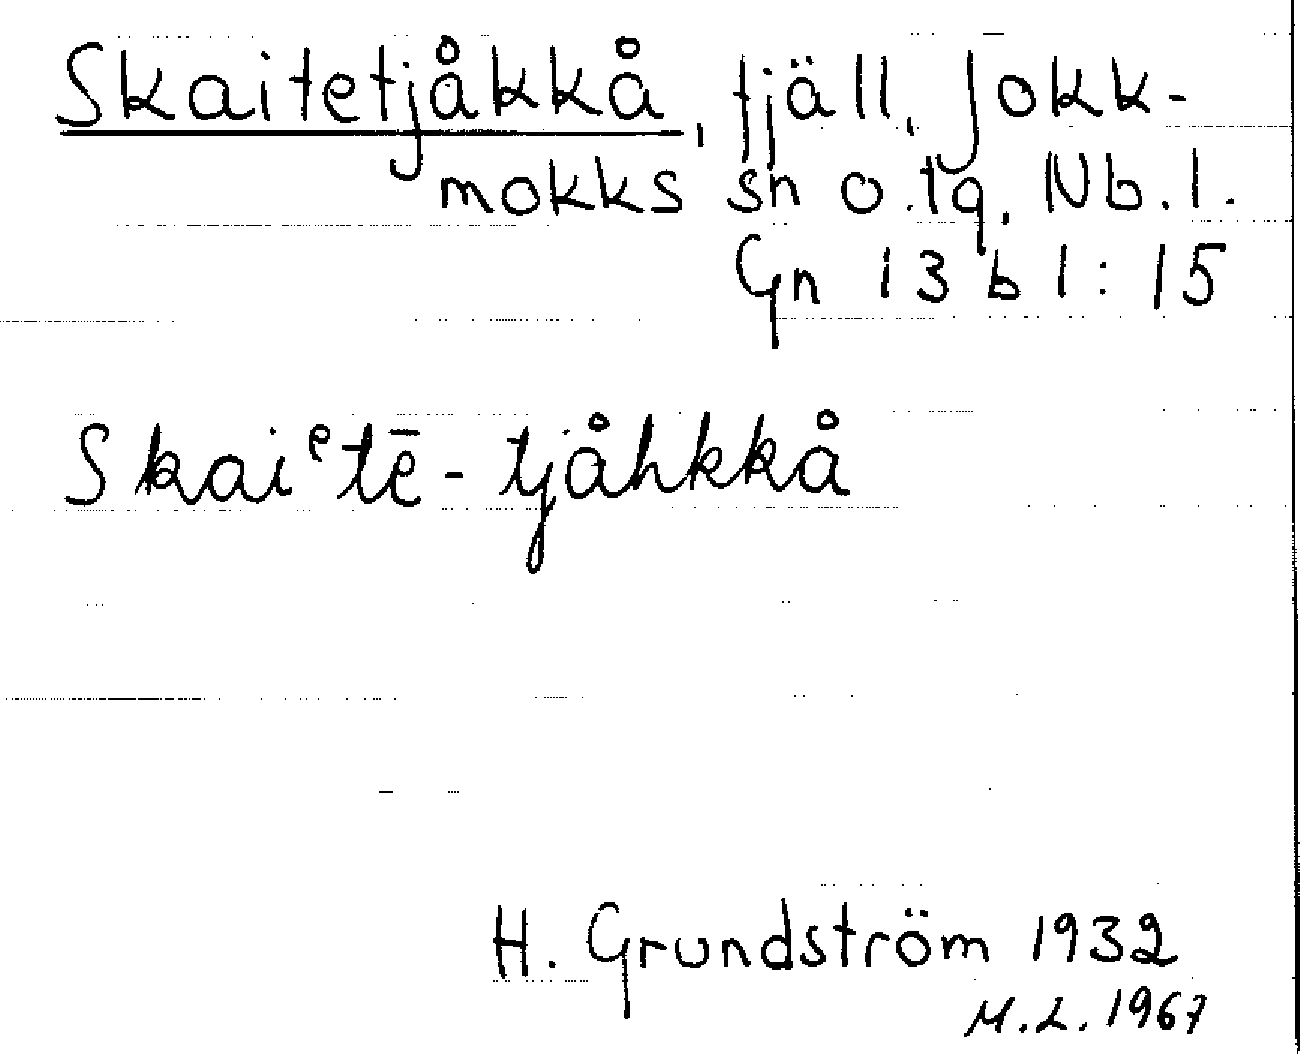 Skaitetjåkkå, fjäll, Jokk-
mokks sn o. tg. Nb. l.
Gn 13 b 1:15
Skaiᵉtē-tjåhkkå
H. Grundström 1932
M.L. 1967